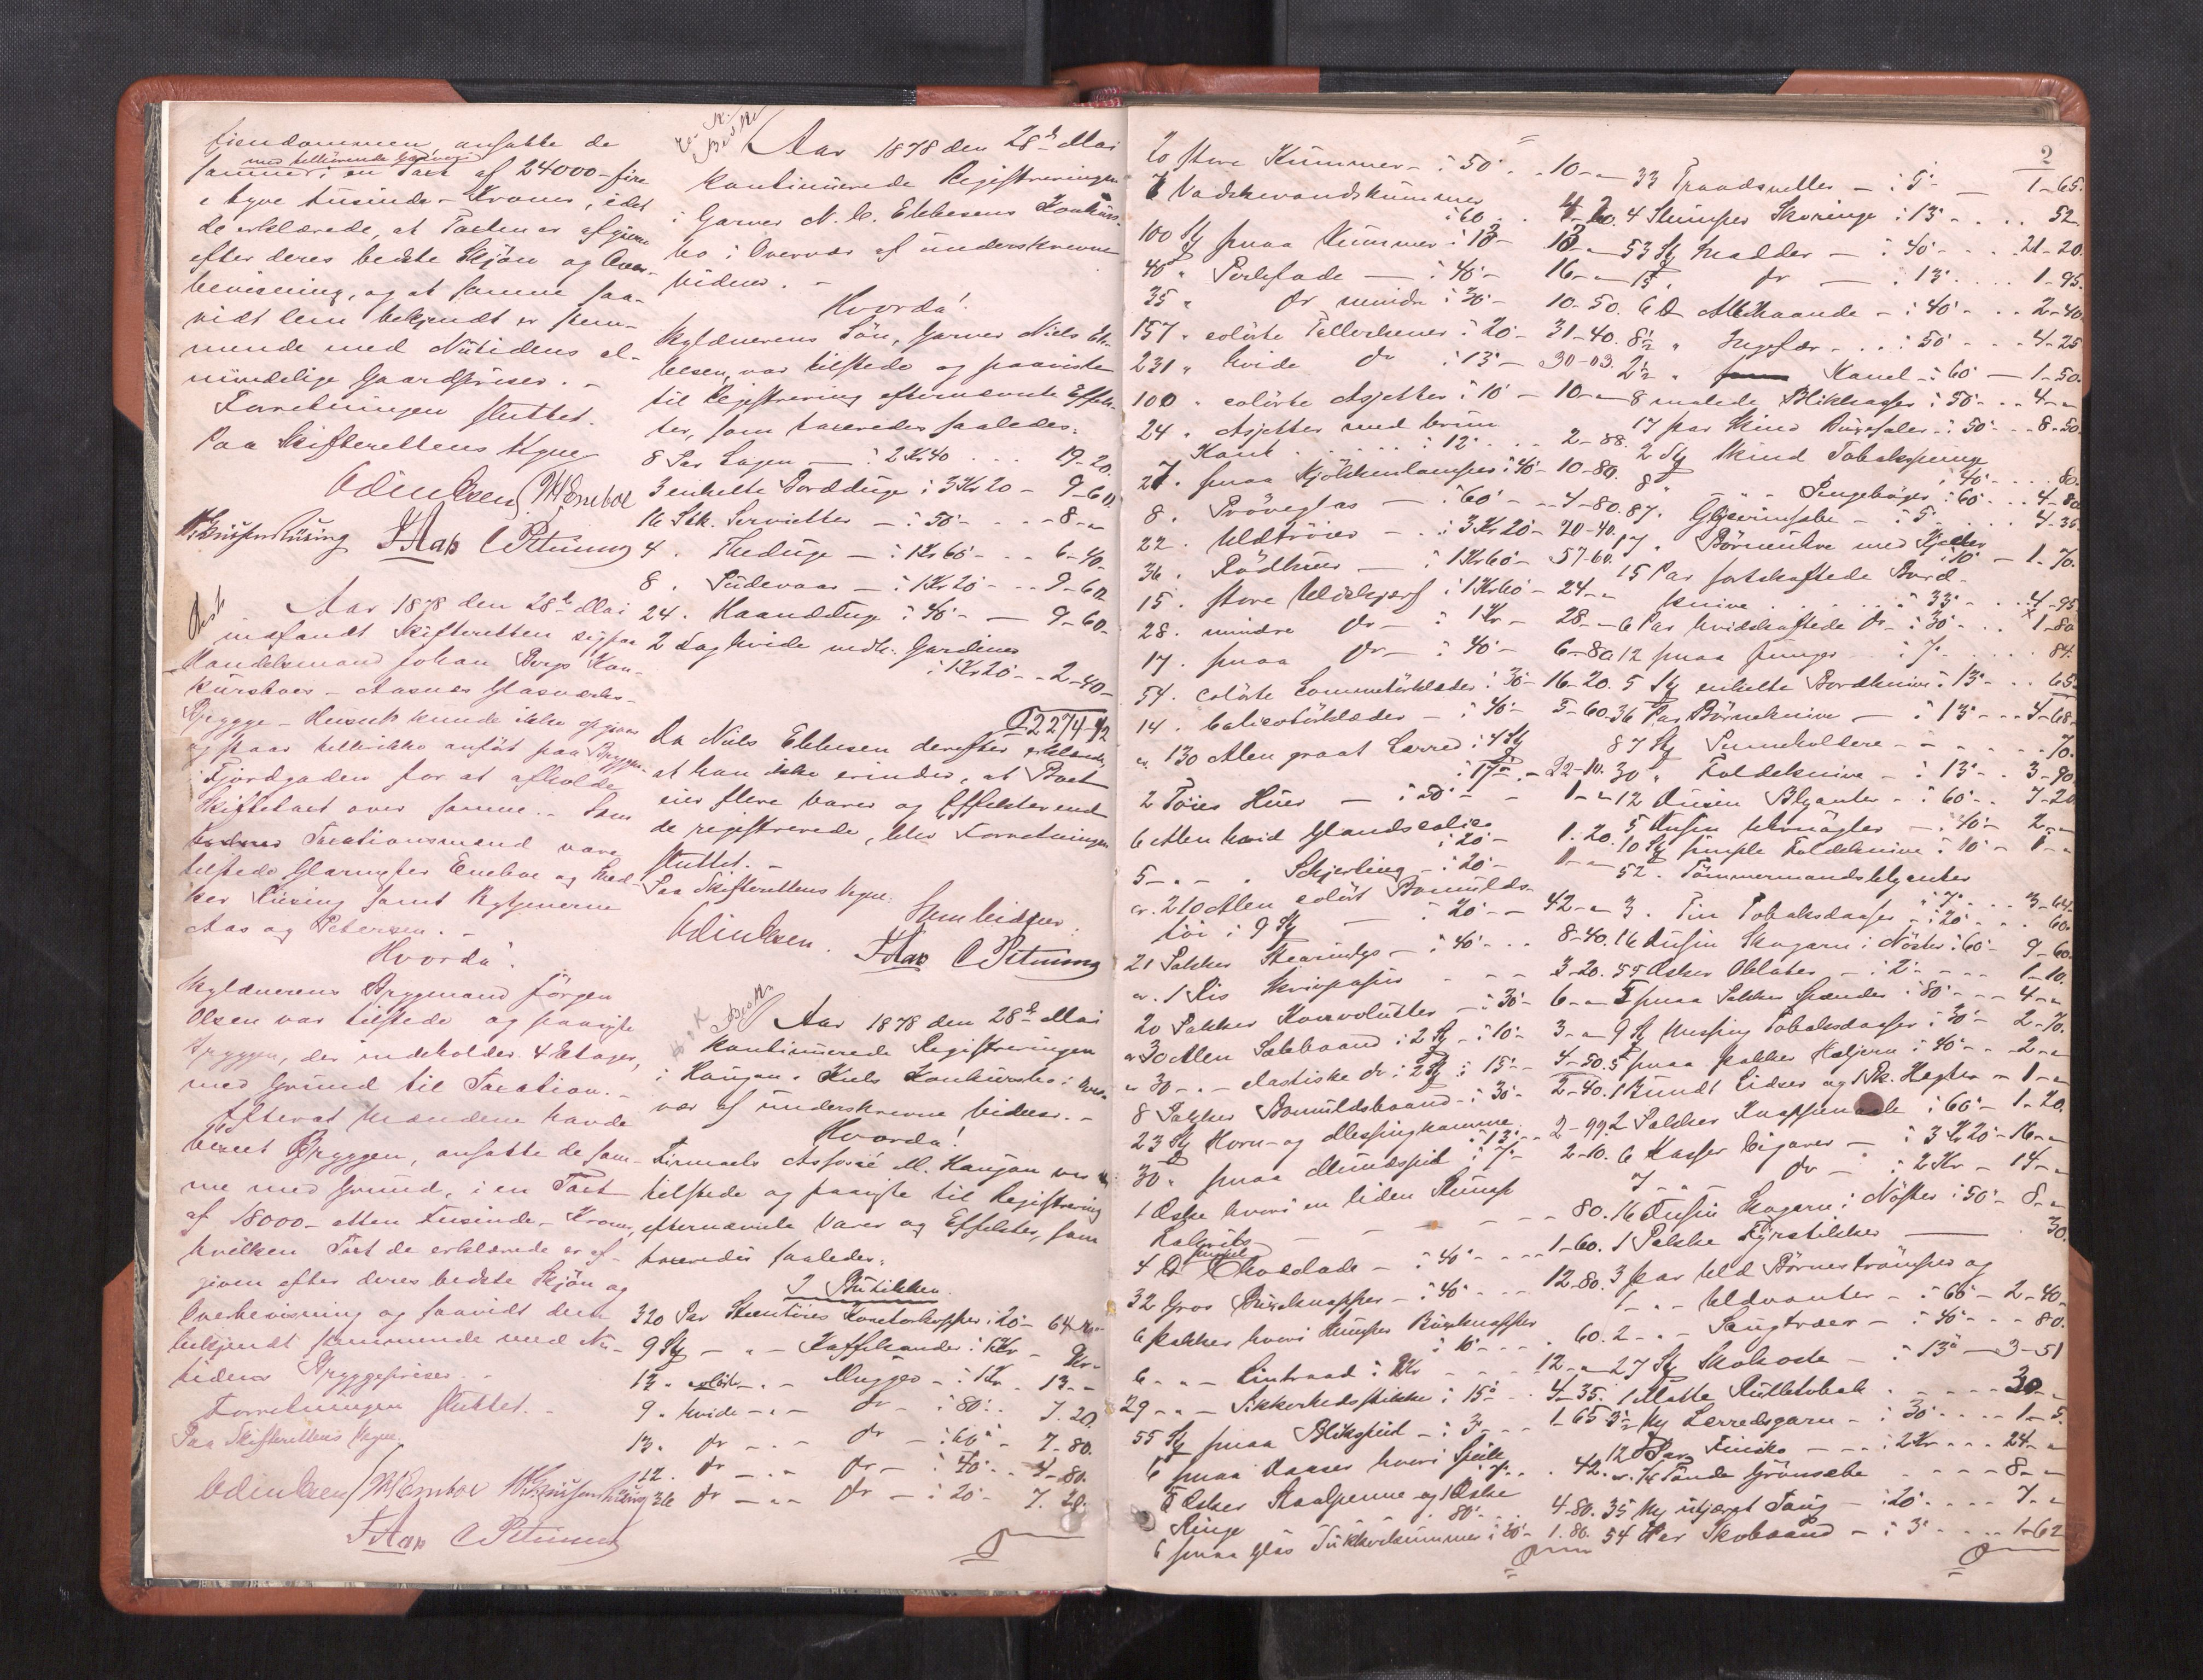 Eiendommen, ansatte de
med tilhørende Gaardsrum
samme i en Taxt af 24000 – fire
& tyve tusinde – Kroner, idet
de erklærede, at Taxten er afgiven
efter deres bedste Skjøn og Over-
bevisning, og at samme saa-
vidt dem bekjendt er stem-
mende med Nutidens al-
mindelige Gaardpriser. –
Forretningen sluttet.
Paa Skifterettens Vegne
Odin Olsen
T Aas C Petersen
Aar 1878 den 28de Mai
indfandt Skifteretten sig paa
Handelsmand Johan Bergs Kon-
kursboes – Aasnæs Glasværks-
Brygge –
i Fjordgaden for at afholde
Skiftetaxt over samme. – Som
Taxationsmænd vare
tilstede Glarmester Eneboe og Sned-
ker Rüsing samt Vidnerne
Aas og Petersen. –
Hvorda!
Skyldnerens Bryggemand Jørgen
Olsen var tilstede og paaviste
Bryggen, der indeholder 4 Etager,
med Grund til Taxation. –
Efterat Mændene havde
beseet Bryggen, ansatte de sam-
me med Grund, i en Taxt
af 18000 – atten tusinde – Kroner,
hvilken Taxt de erklærede er af-
given efter deres bedste Skjøn og
Overbevisning og saavidt dem
bekjendt stemmende med Nu-
tidens Bryggepriser. –
Forretningen sluttet. –
Paa Skifterettens Vegne.
Odin Olsen
T Aas C Petersen
Aar 1878 den 28de Mai
kontinuerede Registreringen
i Garver N. C. Ebbesens Konkurs-
bo i Overvær af underskrevne
Vidner. –
Hvorda!
Skyldnerens Søn, Garver Niels Eb-
besen, var tilstede og paaviste
til Registrering efternævnte Effek-
ter, som taxeredes saaledes:
8 Par Lagen – à 2 Kr 40 . . . 19-20.
3 enkelte Bordduge à 3 Kr 20 – 9-60
16 Stk. Servietter – à 50 – – – 8 – "
4 . Theduge – à 1 Kr 60 – – 6-40
8 . Pudevaar – à 1 Kr 20 – – 9-60
24 . Haandduge à 40 – – 9-60
2 Dag hvide Gardiner
à 1 Kr 20 – – 2-40 –
2274-92
Da Niels Ebbesen derefter erklærede,
at han ikke erindrer, at Boet
eier flere Varer og Effekter end
de registrerede, blev Forretningen
sluttet. –
Paa Skifterettens Vegne:
Odin Olsen. Som Vidner:
T Aas C Petersen
Aar 1878 den 28de Mai
kontinuerede Registreringen
i Haugan & Kuls Konkursbo i Over-
vær af underskrevne Vidner. –
Hvorda!
Firmaets Associé M. Haugan var
tilstede og paaviste til Registrering
efternævnte Varer og Effekter, som
taxeredes saaledes:
I Butikken.
320 Par Stentøies Kopper à 20 – 64 Kr –
9 Stk – " – Kaffekander à 1 Kr – 9 Kr –
13 . – " – Mugger – à 1 Kr – 13 – "
9 . hvide – " – do – à 80 . . 7.20.
13 . do – " – do – à 60 – 7-80.
12 . do – " – do – à 40 . . 4-80.
36 do – " – do – à 20 – 7.20.
2
20 store Kummer – à 50 . . 10 – "
7 Vadskevandskummer
à 60 . . 4-20.
100 Stk smaa Kummer à 13 – 13 – "
40 " – à 40 – 16 – "
35 " do mindre à 30 – 10-50.
157 . colørte Tallerkener à 20 – 31-40.
231 " hvide do à 13 – 30-03.
100 " colørte Asjetter à 10 – 10 – "
24 . Asjetter med brun
Kant . . . . . à 12 . . . 2-88.
27 . smaa Kjøkkenlamper à 40 – 10-80.
8 . Prøveglas – à 60 – – 4-80.
22 . Uldtrøier – . à 3 Kr 20 – 70-40.
36 . Rødhuer – à 1 Kr 60 – 57-60.
15 . store Uldskjærf à 1 Kr 60 – 24 – "
28 . mindre do – à 1 Kr – 28 – "
17 . smaa do – à 40 – 6-80
54 . colørte Lommetørklæder à 30 – 16-20.
14 . Calicotørklæder – à 40 – 5-60.
ca. 130 Alen graat Lærred i 4 Stk
à 17 – 22-10.
2 Tøies Huer – à 50 – – 1 – "
6 Alen hvid Glandscalico
à 20 – 1.20.
5 – " – . Skjerting – à 20 – 1 – "
ca. 210 Alen colørt Bomulds-
tøi i 9 Stk – à 20 – – 42 – "
21 Pakker Stearinlys – à 40 – . . 8-40.
ca. 1 Ris Skrivpapir – – – 3-20.
20 Pakker Konvolutter – à 30 – 6 – "
ca 30 Alen Sælebaand i 2 Stk – à 10 – 3 – "
ca 30 – . – elastiske do i 2 Stk à 15 – 4-50.
8 Pakker Bomuldsbaand – à 30 – 2-40.
23 Stk Horn- og Messingkamme
à 13 – . 2-99.
30 . smaa Mundspil à 7 – 2-10.
1 Æske hvori en liden Slump
– – – – 80.
4 ℔ Chocolade – à 40 – – – 1-60.
32 Gros Buxeknapper – à 40 – – 12-80.
6 Pakker hvori Slumper Buxeknapper
à 10 – – . 60.
6 – " – Lintraad à 2 Kr – – – 12 – "
29 – " – Sikkerhedsstikke à 15 – – 4-35.
55 Stk smaa Blikspeil – à 3 – – – 1-65
6 smaa Daaser hvori Speile
à 7 – . . 42.
6 Æsker Staalpenne og 1 Æske
Ringe – – – – à 80 – . . 4-80.
6 smaa Glas Sukkerkummer à 30 – 1.80.
33 Traadsneller – à 5 – – 1-65.
4 Slumper à 13 – . . . 52.
53 Stk – à 40 – – – 21-20.
15 . do – à 13 . . . . 1-95.
6 ℔ – à 40 – . . 2-40.
8½ " Ingefær – . . à 50 – – – 4-25
2½ " Kanel – à 60 – 1-50.
8 malede Blikdaaser à 50 – . . 4 – "
17 par Skind Buxeseler à 50 – – 8-50
2 Stk Skind Tobakspunge
à 40 – – – 80.
8 " – " – Pengebøger à 60 – . . 4-80
87 . – à 5 – . . 4-35
17 . Børneuhre med Kjæder
à 10 – 1.70.
15 Par sortskaftede Bord-
knive . . . . . . à 33 – . . 4-95
6 Par hvidskaftede do – à 30 – . . 1-80
12 smaa Punger . . à 7 – . . . . 84.
5 Stk enkelte Bordknive à 13 – . . 65
36 Par Børneknive – à 13 – – – 4-68 –
87 Stk Penneholdere – – – – – – 70.
30 " Foldeknive – à 13 – . . 3-90
12 Dusin Blyanter – à 60 – . . 7-20
5 Dusin Uhrnøgler – à 40 – 2 – "
10 Stk simple Foldeknive à 10 – 1 – "
52 . Tømmermandsblyanter
à 7 – . . . 3-64
3 . Tin Tobaksdaaser à 20 – . . 60.
16 Dusin Skogarn i Nøster à 60 – 9-60
55 Æsker Oblater – à 2 – – – – 1-10.
5 smaa Pakker Spænder à 80 – – – 4 – "
9 Stk Messing Tobaksdaaser à 30 – 2-70.
5 smaa Pakker Hæljern à 40 – – – 2 – "
1 Bundt Lidser og 1 Pk. Hegter – 1 – "
2 Pakker Knappenaale à 60 – 1-20.
6 Kasser Cigarer – à 3 Kr 20 – 16 – "
7 – " – do – " à 2 Kr – 14 – "
16 Dusin Skogarn i Nøster à 50 – 8 – "
1 Pakke Fyrstikker – 30.
3 par Uld Børnestrømper og
1 – " – Uldvanter – à 60 – 2-40
2 – " – – à 40 – – – 80.
27 Stk Skokoste – à 13 – 3-51
1 Matte Rulletobak . – – – – 30 – "
3½ Mrk Lærredsgarn – à 30 – – – 1-5.
12 Par – – à 2 Kr – . . 24 – "
ca. ¼ Tønde Grønsæbe – – – – 8 – "
35 Mrk utjæret Taug – à 20 – . . . 7 – "
54 Par Skobaand – à 3 – – . . 1-62